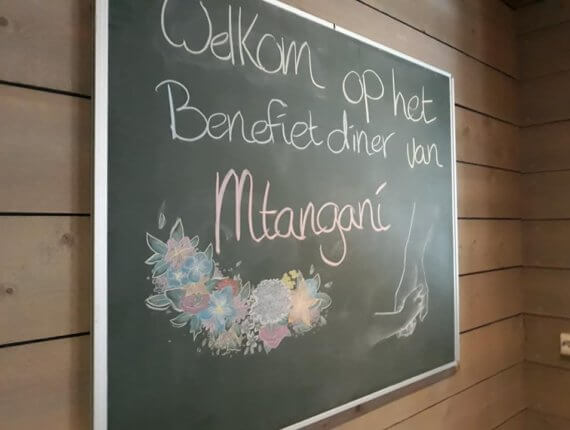 Welkom op het
Benefiet diner van
Mtangani